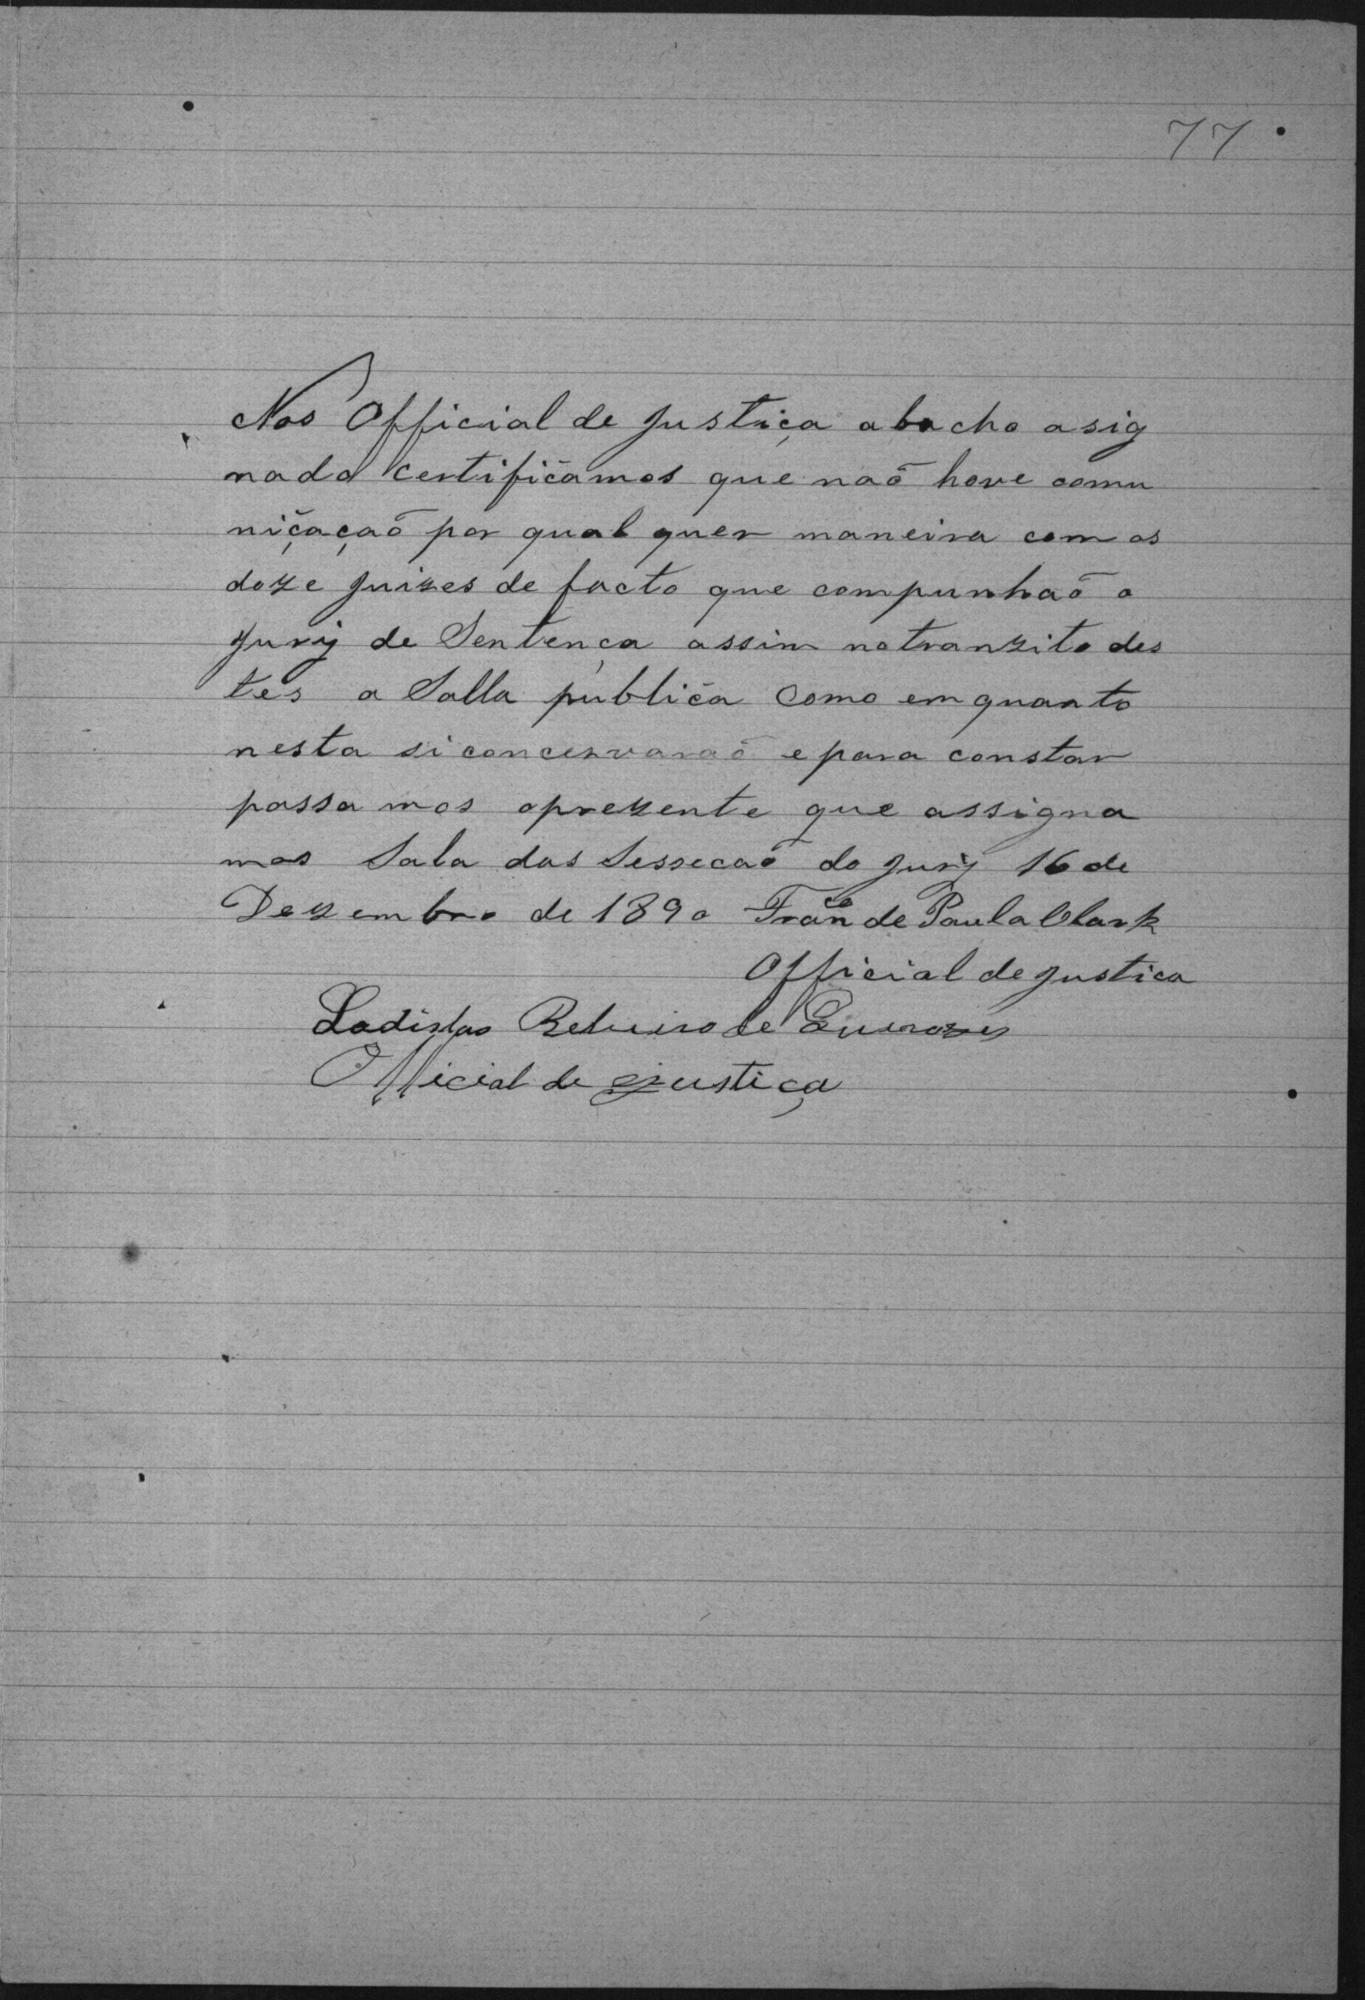 77
Nos Official de justiça abacho asig
nado certificamos que naõ hove comu
nicaçaõ por qual quer maneira com os
doze juizes de facto que compunhaõ o
jury de Sentença assim no tranzito des
tes a Salla publica como em quanto
nesta si concervaraõ e para constar
passa mos oprezente que assigna
mos Sala das Sessecaõ do jury 16 de
Dezembro de 1890 Franco de Paula Clark
Official de justica
Ladislao Rebeiro de
Official de justiça